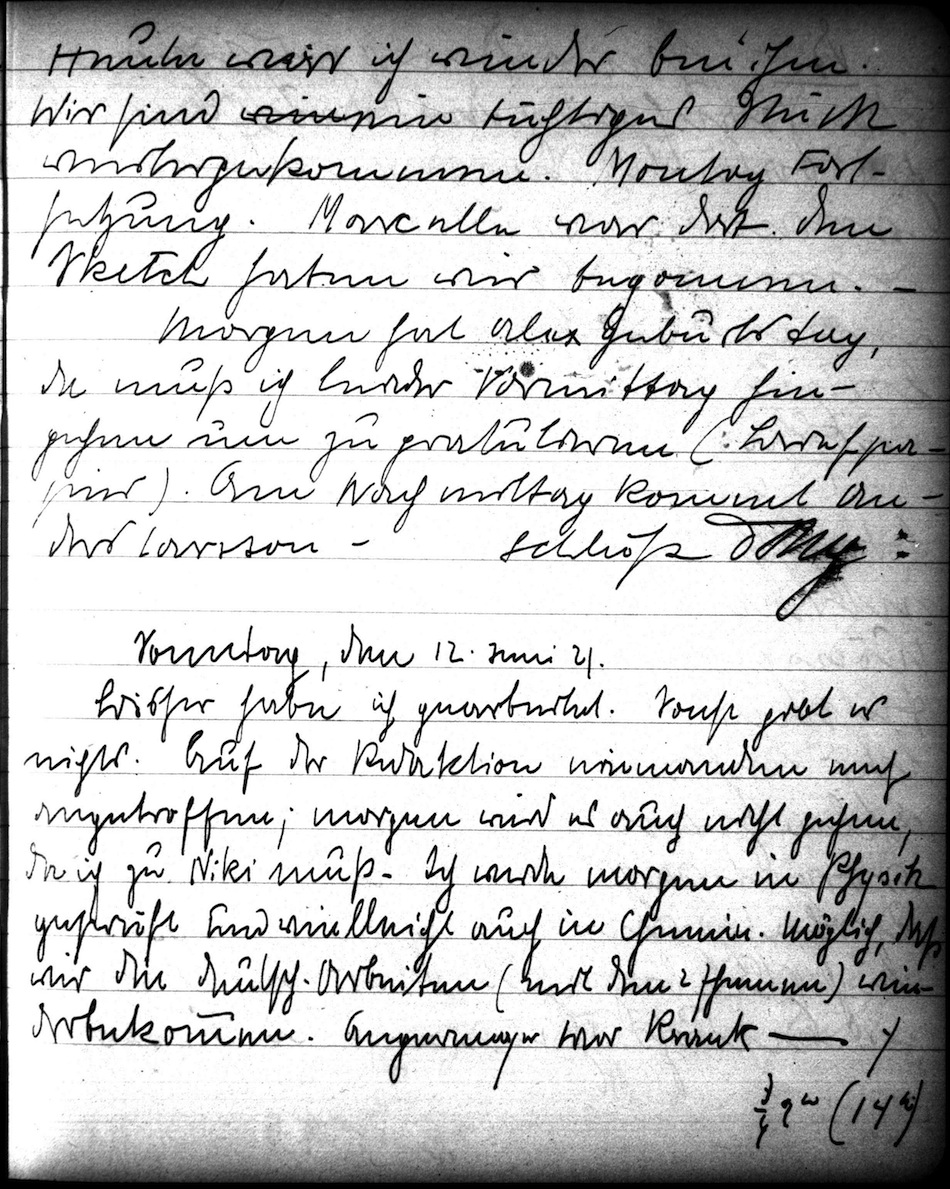 Heute war ich wieder bei ihm.
Wir sind ein tüchtiges Stück
weitergekommen. Montag Fort-
setzung. Marcelle war dort. Den
Sketch haben wir begonnen. –
Morgen hat Alex Geburtstag,
da muß ich leider Vormittag hin-
gehen um zu gratulieren (: Briefpa-
pier). Am Nachmittag kommt An-
ders Larsson – Schluß
Sonntag, den 12. Juni 21.
Bisher habe ich gearbeitet. Sonst gibt es
nichts. Auf der Redaktion niemanden mehr
angetroffen; morgen wird es auch nicht gehen,
da ich zu Niki muß. Ich werde morgen in Physik
geprüft und vielleicht auch in Chemie. Möglich, daß
wir die deutsch. Arbeiten (mit den 2 Themen) wie-
derbekommen. Angermayer war krank —
3/4 9 (14